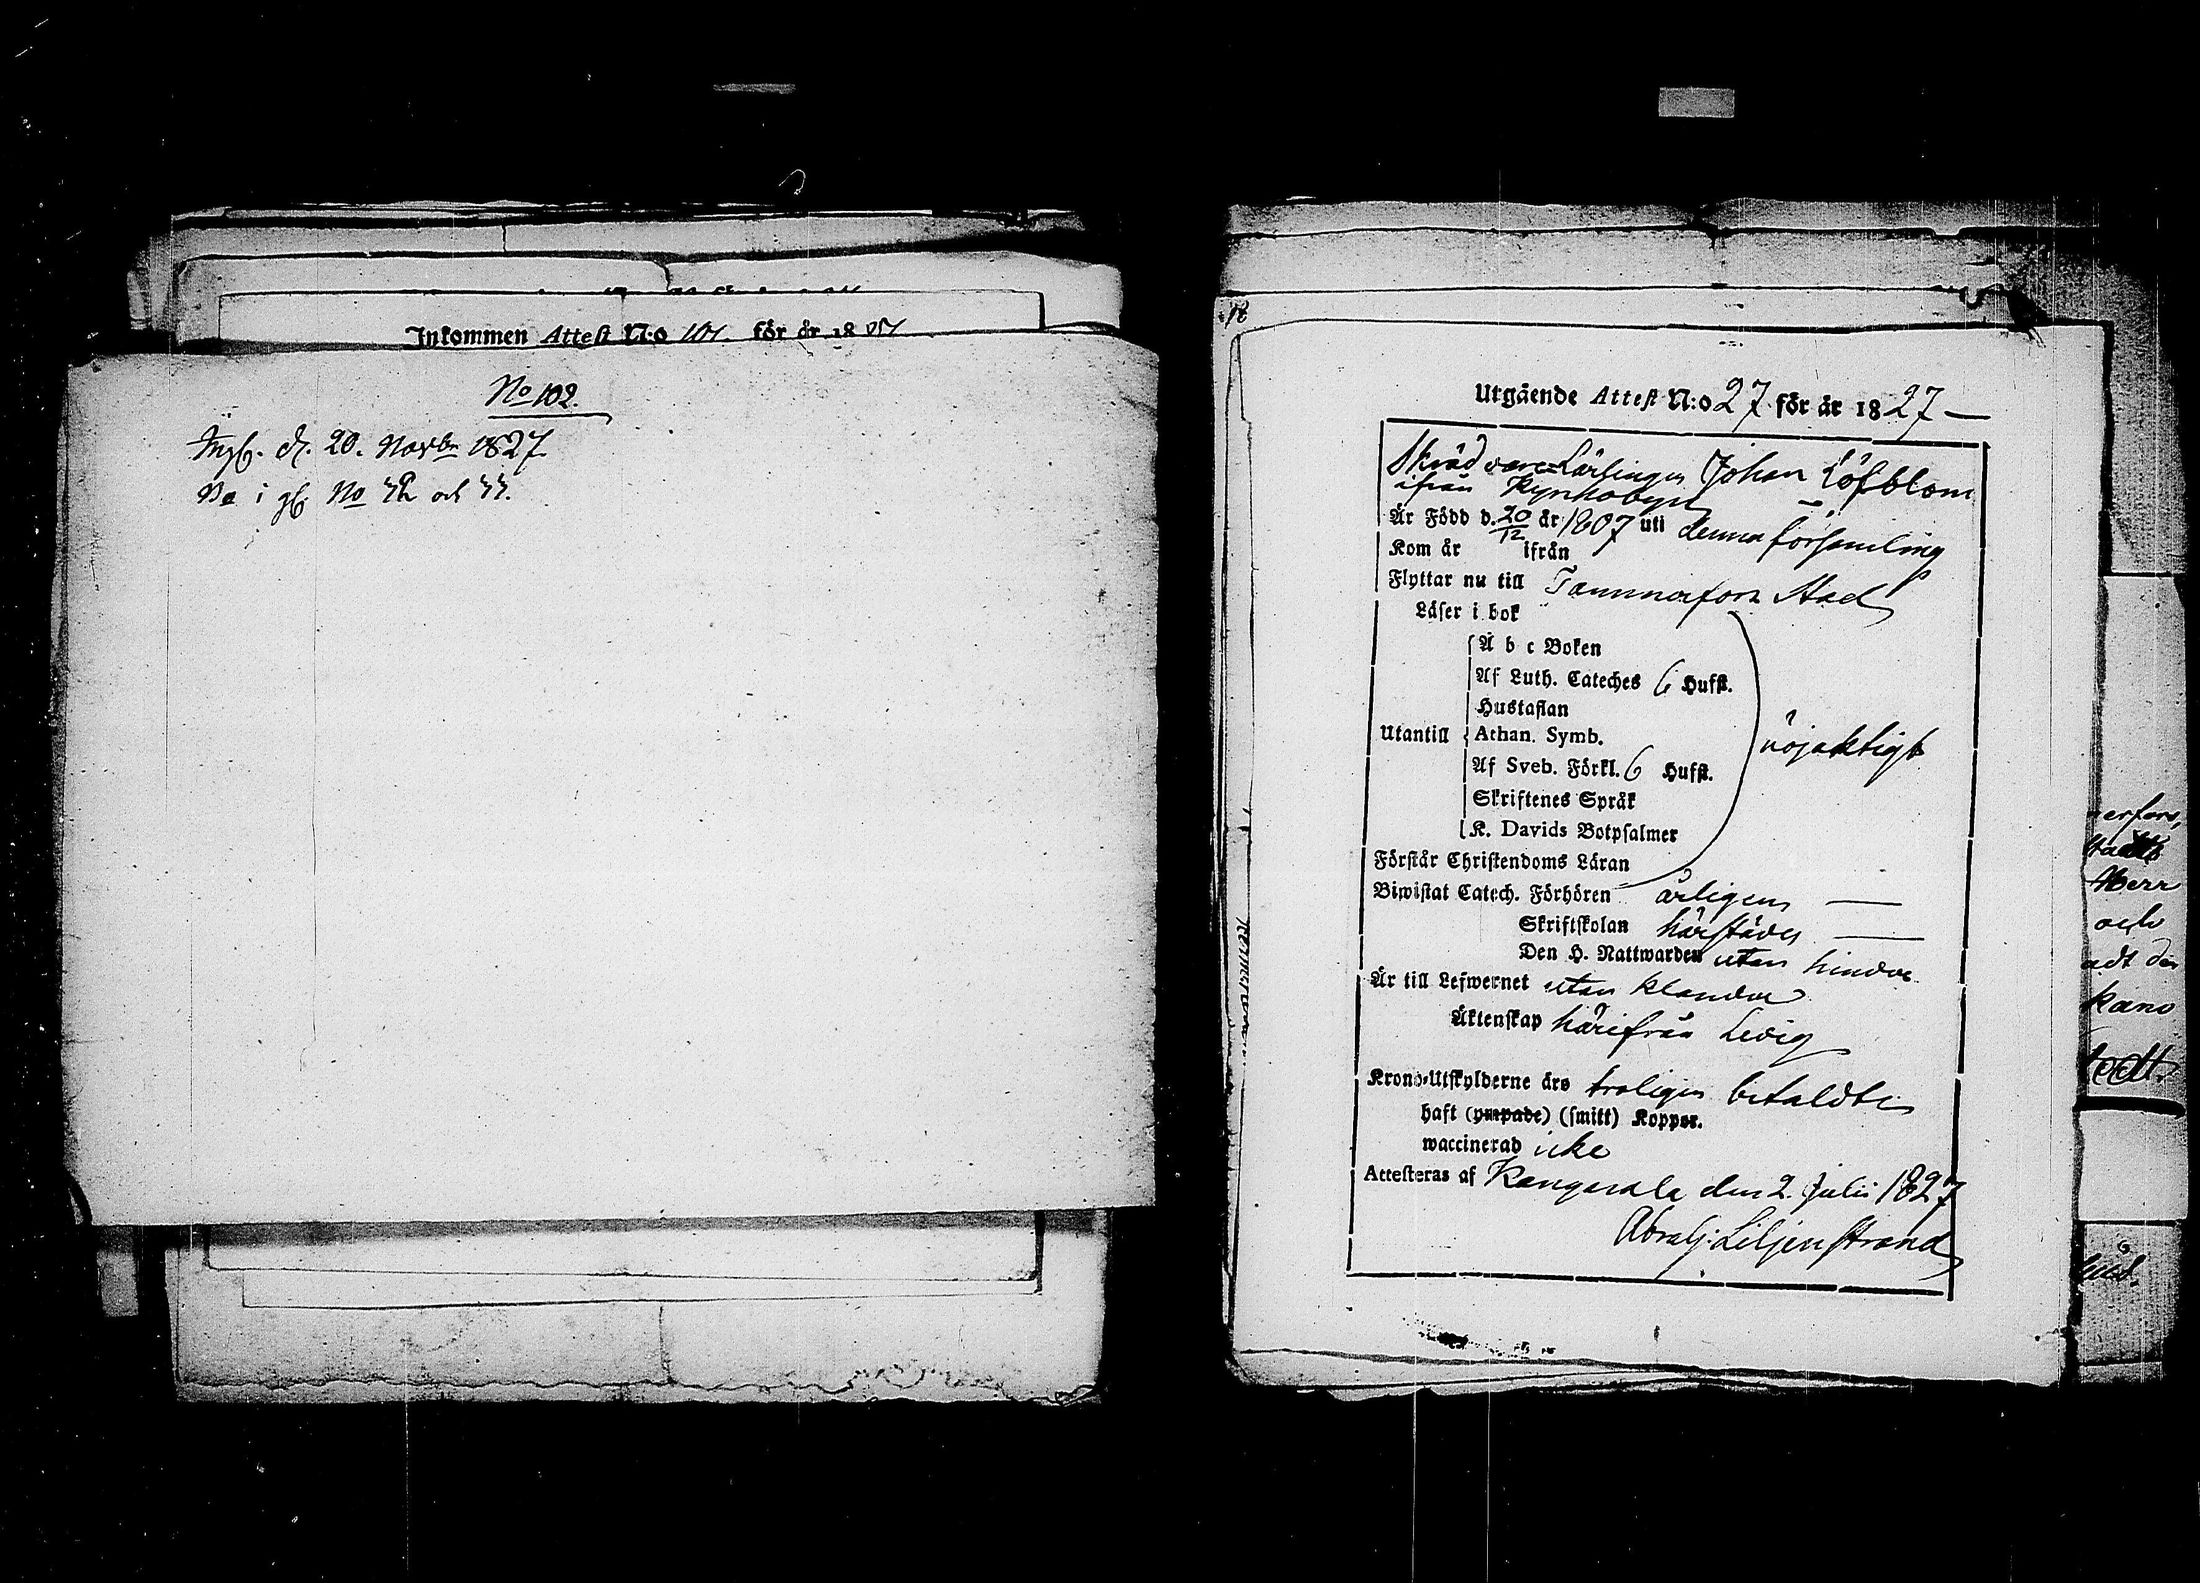 Inkommen Attest N:o 101. för år 18
No 102.
d. 20. Novbr 1827.
i No och
Utgående Attest N:o 27 för år 1827
Skräddare Lärlingen Johan Löfblom
ifrån
Är Född d. 20/12 år 1807 uti denna församling
Kom år ifrån
Flyttar nu till Tammerfors Stad
Läser i bok
A b c Boken
Af Luth. Cateches 6 Hufst.
Hustaflan
Utantill Athan. Symb. nöjaktigt
Af Sveb. Förkl. 6 Hufst.
Skriftenes Språk
K. Davids Botpsalmer
Förstår Christendoms Läran
Biwistat Catech. Förhören årligen
Skriftskolan härstädes
Den H. Nattwarden utan hinder
Är till Lefwernet utan klander
Äktenskap härifrån Ledig
Krono-Utskylderne äro troligen betaldte
haft (ympade) (smitt) Koppor.
waccinerad icke
Attesteras af Kangasala den 2. Julii 1827
Abrah: Liljenstrand
Herr
och